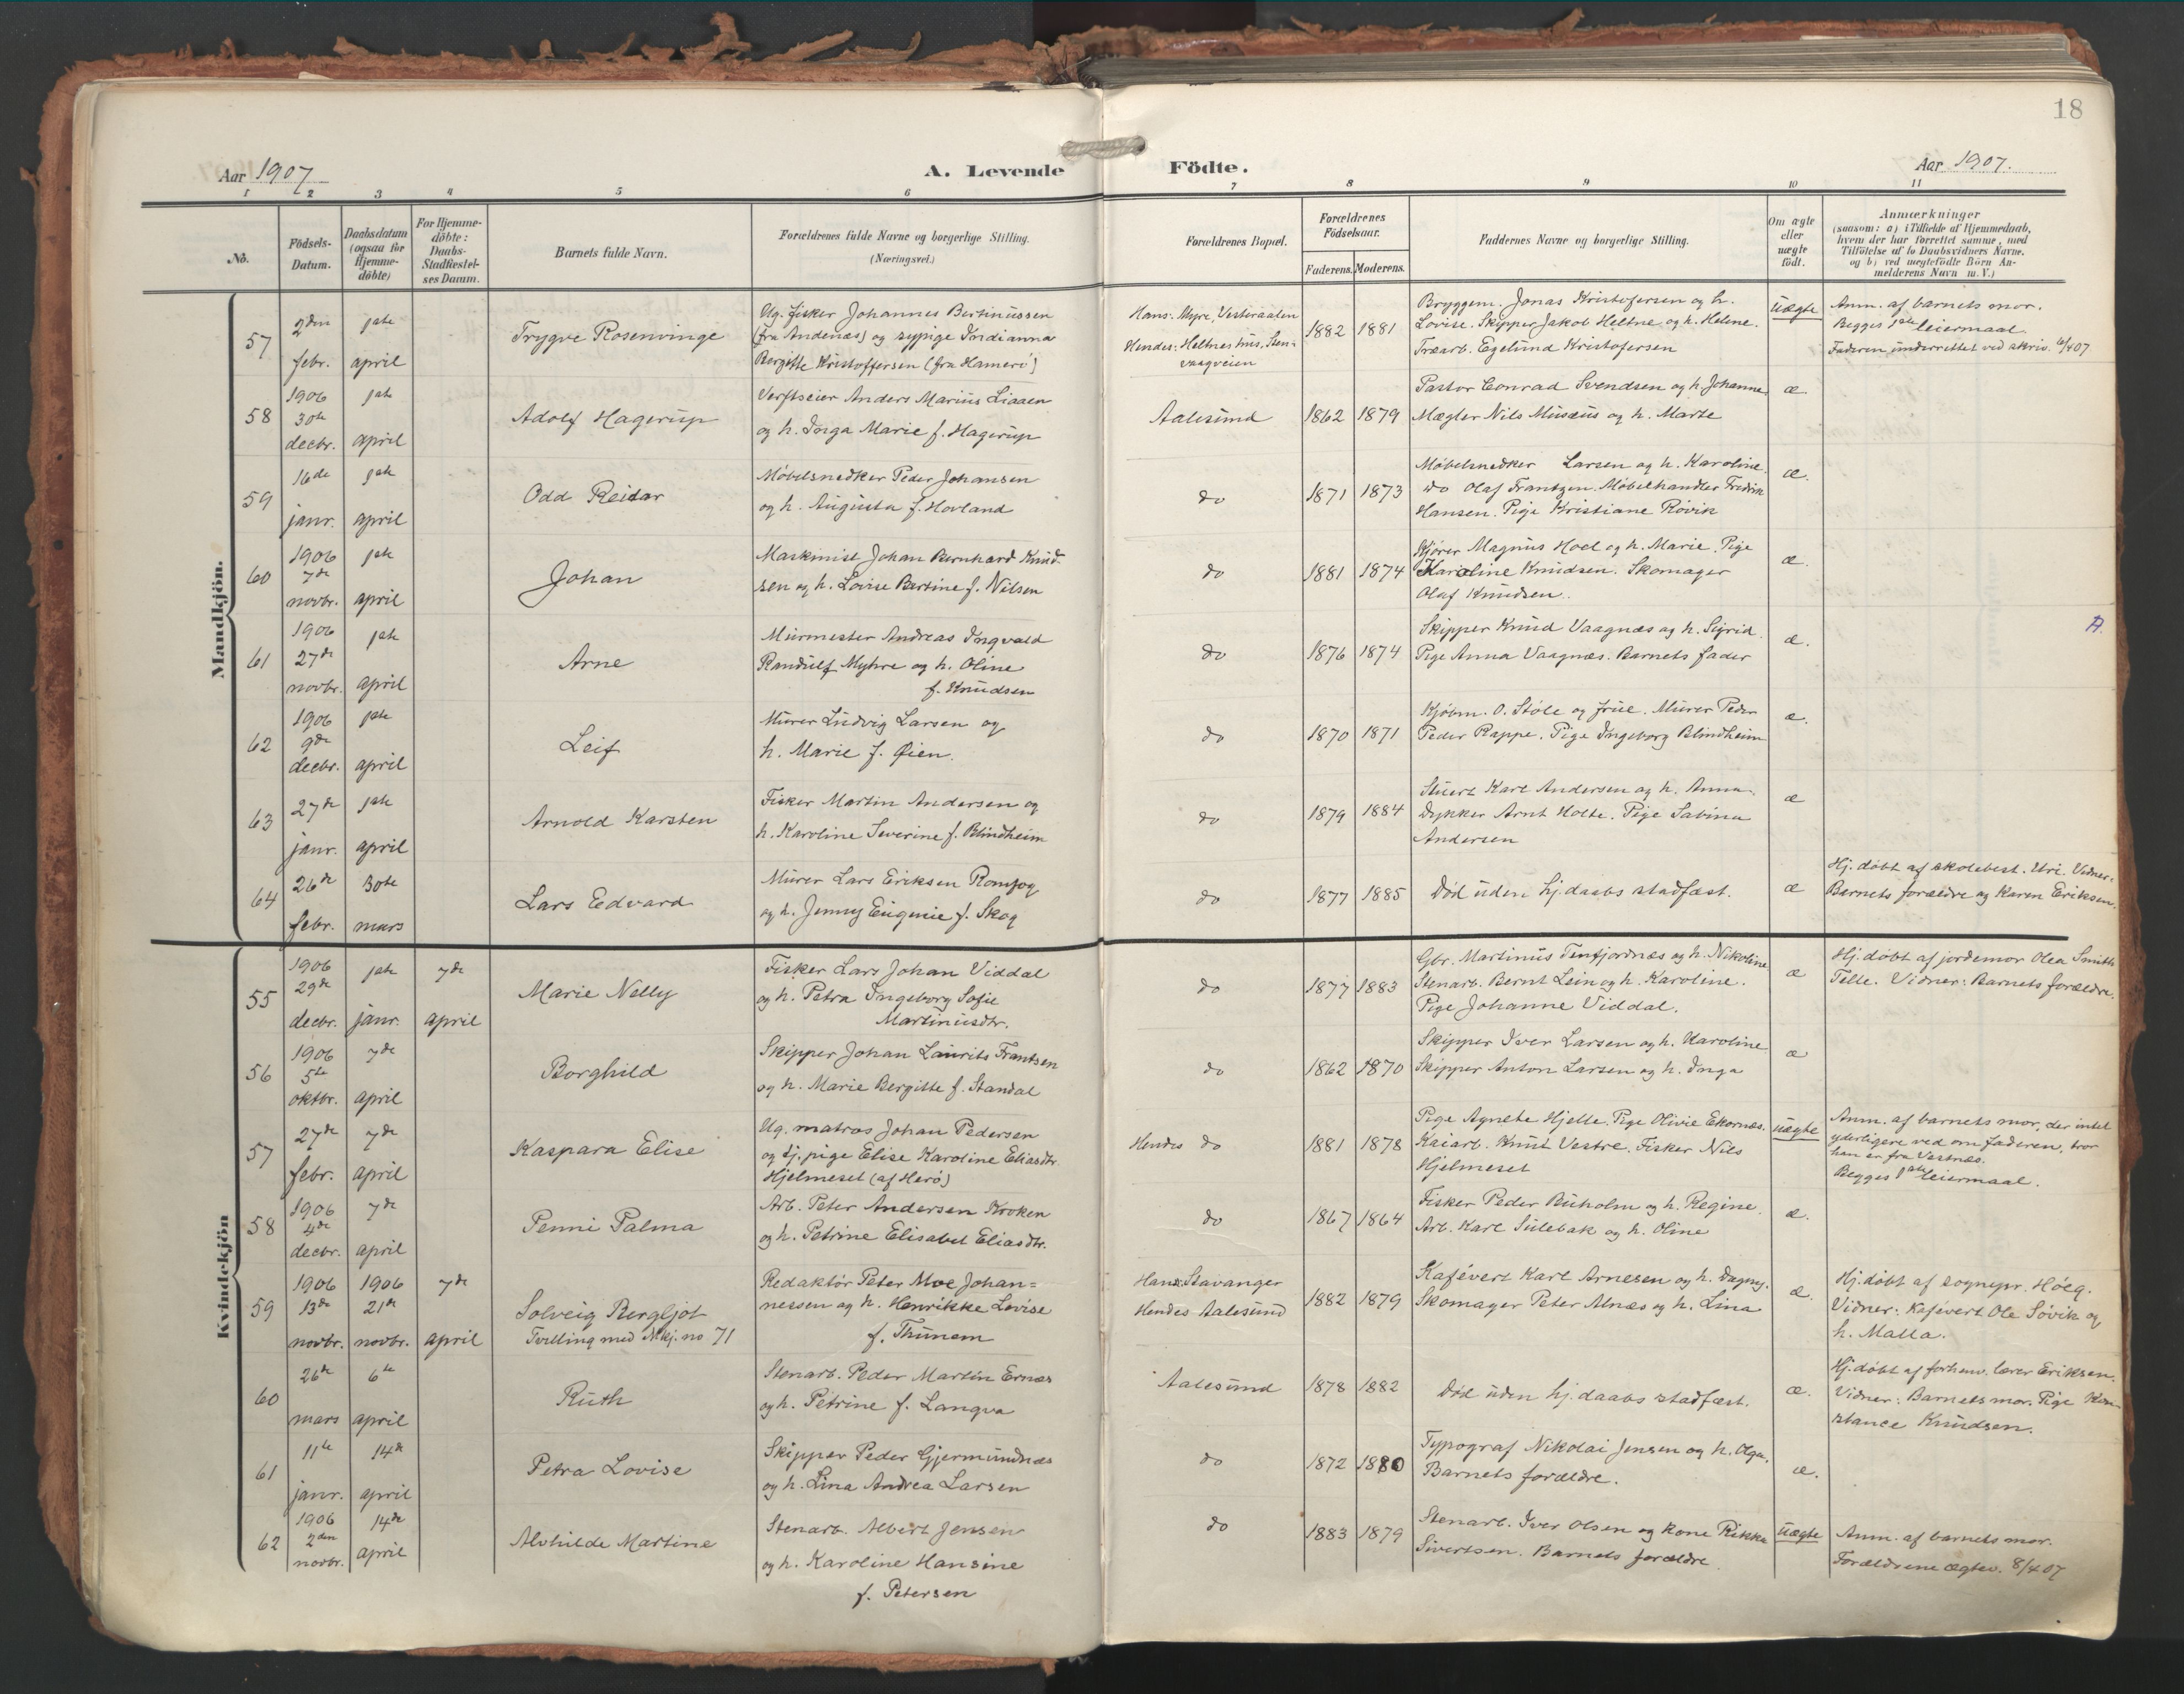 18
Aar 1907
A. Levende Födte.
Aar 1907.
1 2 3 4 5 6 7 8 9 10 11
No.
Födsels-Datum.
Daabsdatum (ogsaa for Hjemme-döbte)
For Hjemme-döbte: Daabs-Stadfæstel-ses Datum.
Barnets fulde Navn.
Forældrenes fulde Navne og borgerlige Stilling.
(Næringsvei.)
Forældrenes Bopæl.
Forældrenes Födselsaar.
Faderens. Moderens.
Faddernes Navne og borgerlige Stilling.
Om ægte eller uægte födt.
Anmærkninger
(saasom: a) i Tilfælde af Hjemmedaab,
hvem der har forrettet samme, med
Tilföielse af to Daabsvidners Navne,
og b) ved uegtefödte Börn An-
melderens Navn m. V.)
Mandkjön.
57
2den febr.
1ste april
Trygve Rosenvinge
Ug. fisker Johannes Bertinussen
(fra Andenæs) og sypige Indianna
Bergitte Kristoffersen (fra Hamerö)
Hans: Myre, Vesteraalen
Hendes: Heltnes hus, Sten-
vaagveien
1882 1881
Bryggem. Jonas Kristofersen og h.
Lovise. Skipper Jakob Heltne og h. Helene.
Træarb. Egelund Kristofersen
Uægte
Anm. af barnets mor.
Begges 1ste leiermaal
Faderen underrettet ved skriv. 6/4 07
58
1906 30te decbr.
1ste april
Adolf Hagerup
Verftseier Anders Marius Liaaen
og h. Inga Marie f. Hagerup
Aalesund
1862 1879
Pastor Conrad Svendsen og h. Johanne
Mægler Nils Musæus og h. Marte
æ.
59
16de janr.
1ste april
Odd Reidar
Möbelsnedker Peder Johansen
og h. Augusta f. Hovland
do
1871 1873
Möbelsnedker Larsen og h. Karoline.
do Olaf Frantzen. Möbelhandler Fredrik
Hansen. Pige Kristiane Rövik
æ.
60
1906 7de novbr.
1ste april
Johan
Maskinist Johan Bernhard Knud-
sen og h. Lovise Bertine f. Nilsen
do
1881 1874
Kjörer Magnus Hoel og h. Marie. Pige
Karoline Knudsen. Skomager
Olaf Knudsen.
æ.
61
1906 27de novbr.
1ste april
Arne
Murmester Andreas Ingvald
Randulf Myhre og h. Oline
f. Knudsen
do
1876 1874
Skipper Knud Vaagnæs og h. Sigrid.
Pige Anna Vaagnæs. Barnets fader
æ.
A.
62
1906 9de decbr.
1ste april
Leif
Murer Ludvig Larsen og
h. Marie f. Øien.
do
1870 1871
Kjöbm. O. Stöle og frue. Murer Peder
Peder Rappe. Pige Ingeborg Blindheim
æ.
63
27de janr.
1ste april
Arnold Karsten
Fisker Martin Andersen og
h. Karoline Severine f. Blindheim
do
1879 1884
Stuert Karl Andersen og h. Anna.
Dykker Arnt Holte. Pige Sabina
Andersen
æ
64
26de febr.
30te mars
Lars Edvard
Murer Lars Eriksen Romfog
og h. Jenny Eugenie f. Skog
do
1877 1885
Död uden hj.daabs stadfæst.
æ
Hj. döbt af skolebest. Uri. Vidner:
Barnets forældre og Karen Eriksen.
Kvindekjön
55
1906 29de decbr.
1ste janr.
7de april
Marie Nelly
Fisker Lars Johan Viddal
og h. Petra Ingeborg Sofie
Martinusdtr.
do
1877 1883
Gbr. Martinus Tenfjordnæs og h. Nikoline.
Stenarb. Bernt Lein og h. Karoline.
Pige Johanne Viddal.
æ
Hj. döbt af jordemor Olea Smith
Telle. Vidner: Barnets forældre.
56
1906 5te oktbr.
7de april
Borghild
Skipper Johan Laurits Frantsen
og h. Marie Bergitte f. Standal
do
1862 1870
Skipper Iver Larsen og h. Karoline
Skipper Anton Larsen og h. Inga
æ
57
27de febr.
7de april
Kaspara Elise
Ug. matros Johan Pedersen
og tj.pige Elise Karoline Eliasdtr.
Hjelmeset (af Herö)
Hendes do
1881 1878
Pige Agnete Hjelle. Pige Olivie Ekornæs.
Kaiarb. Knut Vestre. Fisker Nils
Hjelmeset
uægte
Anm. af barnets mor, der intet
yderligere ved om faderen, tror
han er fra Vestnæs.
Begges 1ste leiermaal.
58
1906 4de decbr.
7de april
Penni Palma
Arb. Peter Andersen Kroken
og h. Petrine Elisabet Eliasdtr.
do
1867 1864
Fisker Peder Buholm og h. Regine.
Arb. Karl Sulebak og h. Oline
æ.
59
1906 13de novbr.
1906 21de novbr.
7de april
Solveig Bergljot
Tvilling med Mkj. no 71
Redaktör Peter Moe Johan=
nessen og h. Henrikke Lovise
f. Thunem
Hans: Stavanger
Hendes Aalesund
1882 1879
Kafévert Karl Arnesen og h. Dagny.
Skomager Peter Alnæs og h. Lina
æ.
Hj. döbt af sognepr. Höeg.
Vidner: Kafévert Ole Sövik og
h. Malla.
60
26de mars
6te april
Ruth
Stenarb. Peder Martin Ernæs
og h. Petrine f. Langva
Aalesund
1878 1882
Död uden hj.daabs stadfæst.
æ.
Hj. döbt af forhenv. lærer Eriksen.
Vidner: Barnets mor. Pige Kon-
stance Knudsen.
61
11te janr.
14de april
Petra Lovise
Skipper Peder Gjermundnæs
og h. Lina Andrea Larsen
do
1872 1880
Typograf Nikolai Jensen og h. Olga.
Barnets forældre.
æ.
62
1906 2den novbr.
14de april
Alvhilde Martine
Stenarb. Albert Jensen
og h. Karoline Hansine
f. Petersen
do
1883 1879
Stenarb. Iver Olsen og kone Rikka
Sivertsen. Barnets forældre
Uægte
Anm. af barnets mor.
Forældrene ægtev. 8/4 07